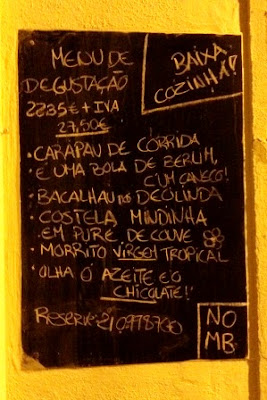 MENU DE
DEGUSTAÇÃO
BAIXA
COZINHA!
22.35€ + IVA
27,50€
• CARAPAU DE CORRIDA
• É UMA BOLA DE BERLIM,
C'UM CANECO!
• BACALHAU DEOLINDA
• COSTELA MINDINHA
EM PURÉ DE COUVE
• MORRITO VIRGEM TROPICAL
• OLHA Ó AZEITE E O
CHICOLATE!
NO
MB